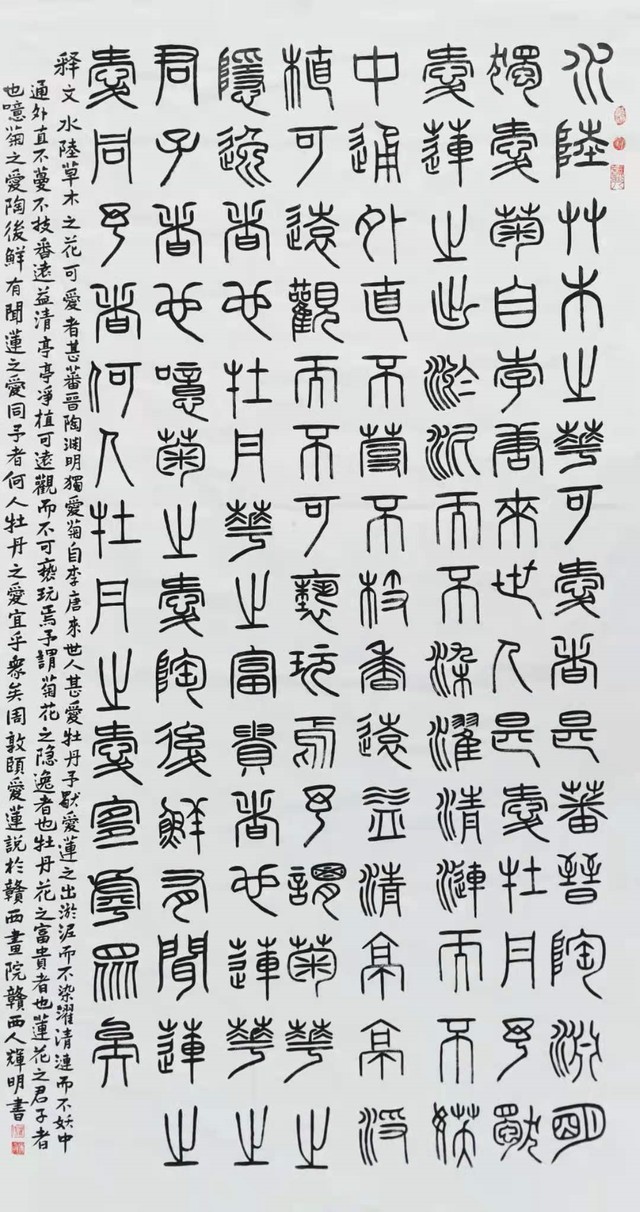 水陸艸木之華可愛者甚蕃晉陶淵明
獨愛菊自李唐來世人甚愛牡丹予獨
愛蓮之出淤泥而不染濯清漣而不妖
中通外直不蔓不枝香遠益清亭亭淨
植可遠觀而不可褻玩焉予謂菊華之
隱逸者也牡丹華之富貴者也蓮華之
君子者也噫菊之愛陶後鮮有聞蓮之
愛同予者何人牡丹之愛宜乎眾矣
释文水陸草木之花可愛者甚蕃晉陶淵明獨愛菊自李唐來世人甚愛牡丹予獨愛蓮之出淤泥而不染濯清漣而不妖中
通外直不蔓不枝香遠益清亭亭淨植可遠觀而不可褻玩焉予謂菊花之隐逸者也牡丹花之富貴者也蓮花之君子者
也噫菊之愛陶後鮮有聞蓮之愛同予者何人牡丹之愛宜乎眾矣周敦頤愛蓮説於贛西畫院贛西人輝明書